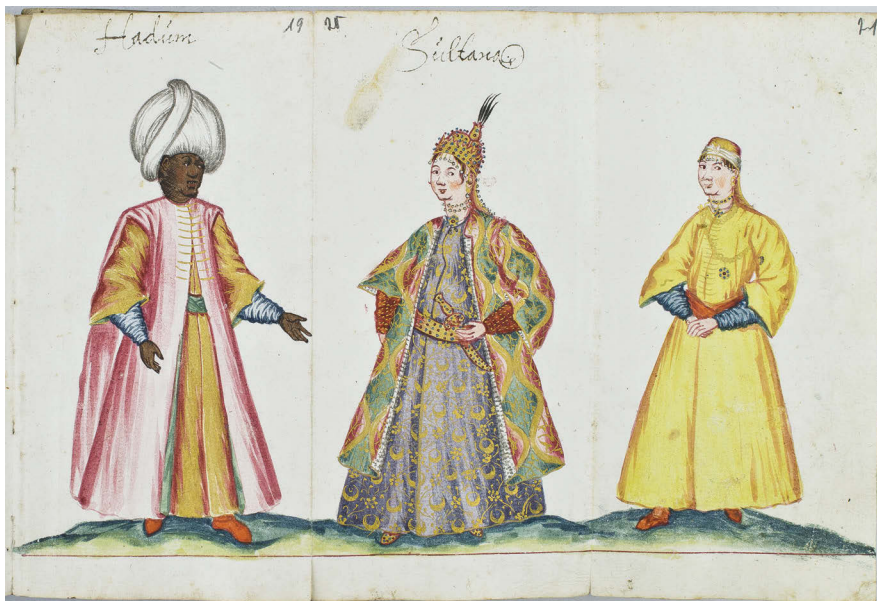 Hadúm
19
20
Sultana
21